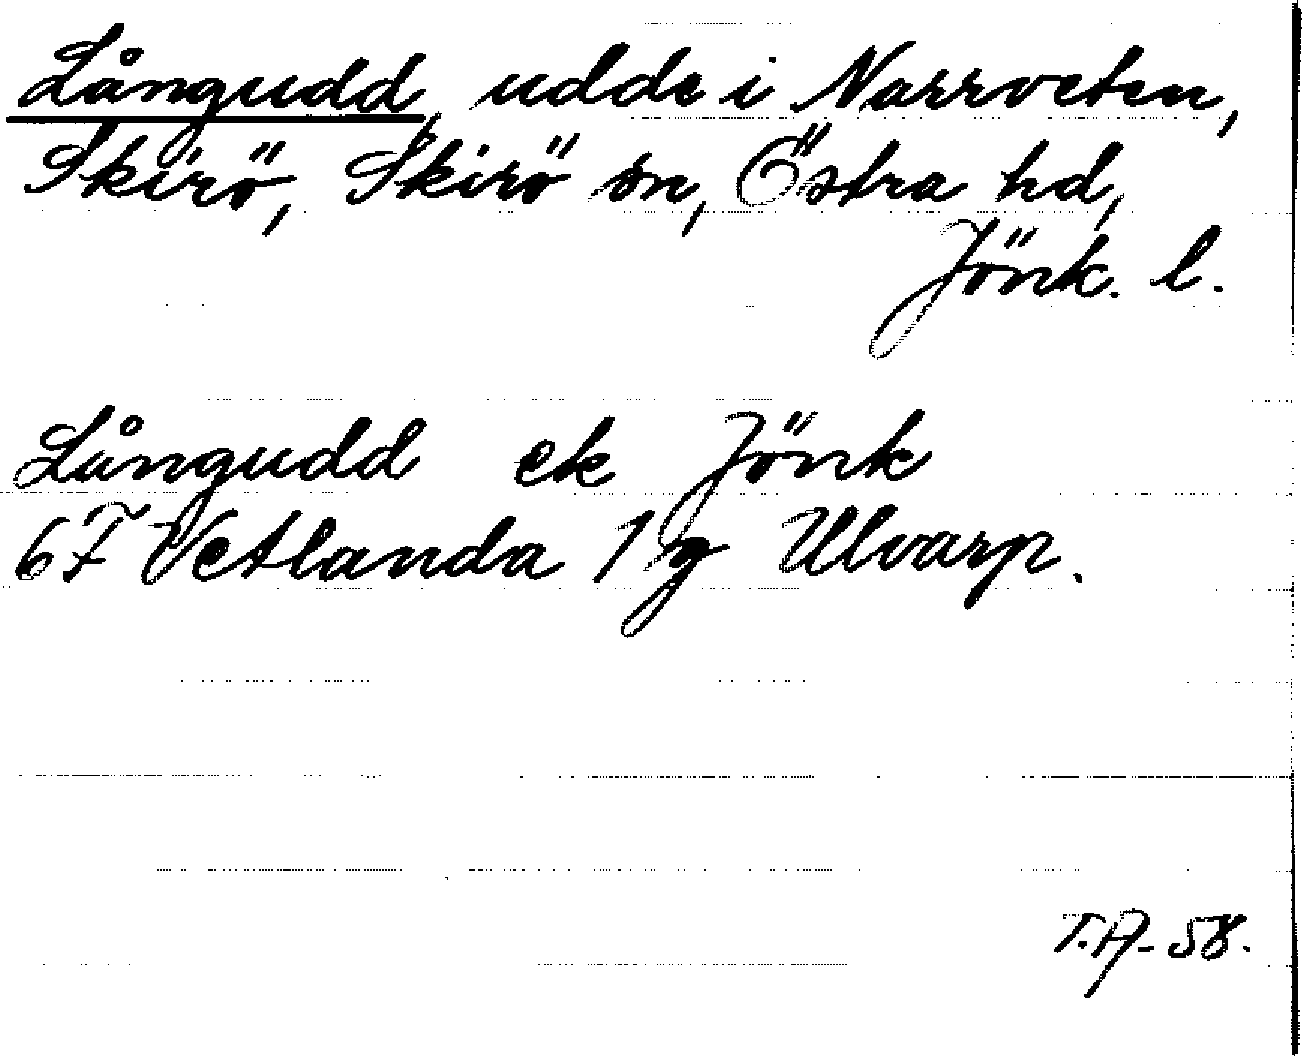 Långudd, udde i Narrveten,
Skirö, Skirö sn, Östra hd,
Jönk. l.
Långudd ek Jönk
6F Vetlanda 1g Ulvarp.
T.A- 58.